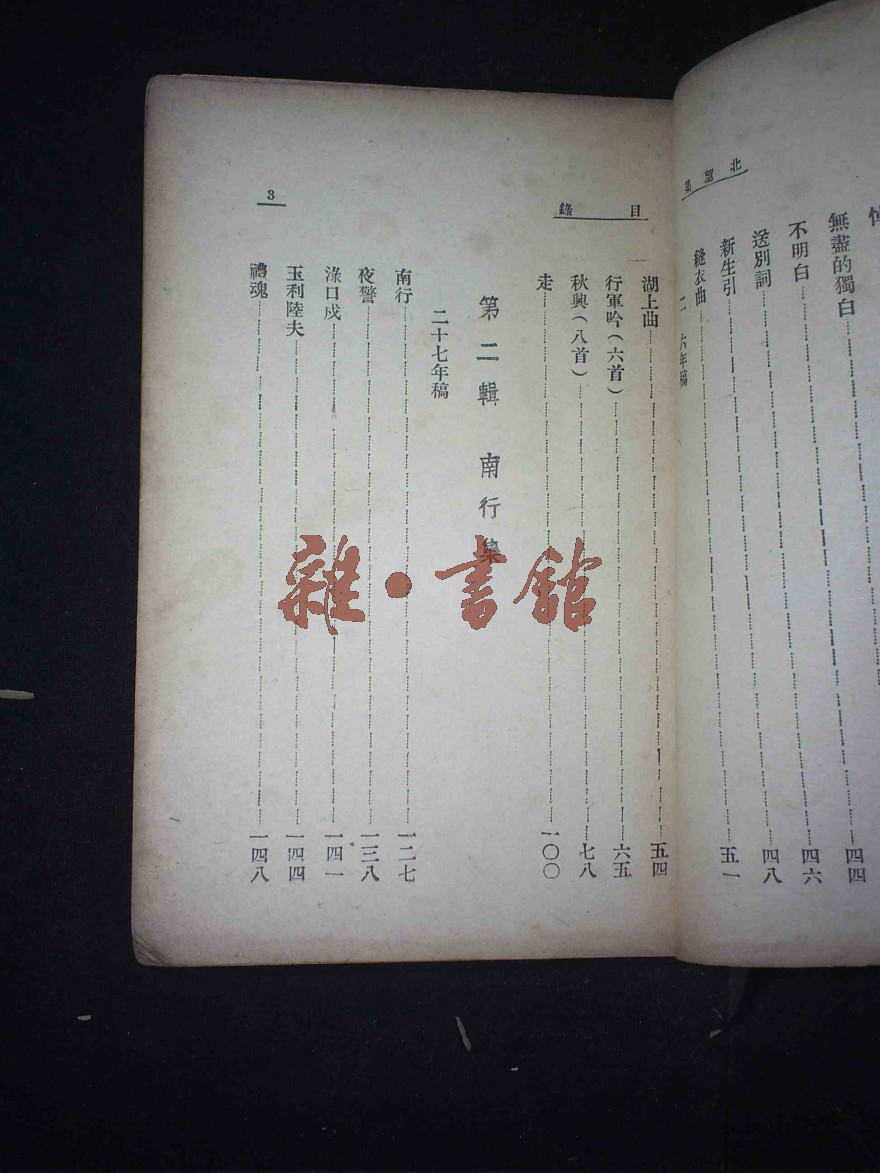 北望集
無盡的獨白 四四
不明白 四六
送別詞 四八
新生引 五一
縫衣曲
六年稿
目錄
3
湖上曲 五四
行軍吟(六首) 六五
秋興(八首) 七八
走 一〇〇
第二輯 南行集
二十七年稿
南行 一二七
夜警 一三八
淥口戍 一四一
玉利陸夫 一四四
禮魂 一四八
雜·書館